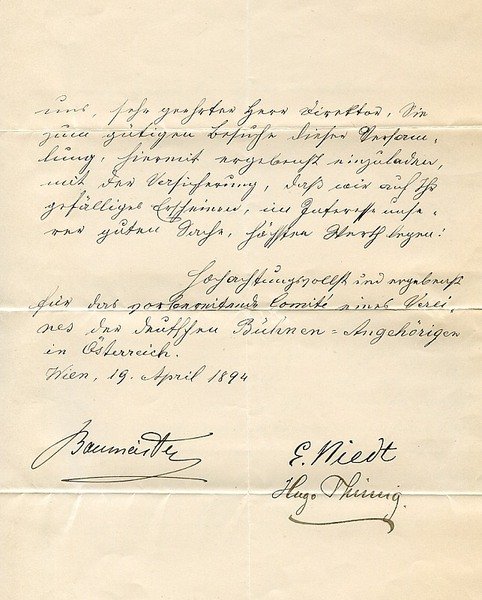 uns, sehr geehrter Herr Direktor, Sie
zum gütigen Besuche dieser Versam-
lung, hiermit ergebenst einzuladen,
mit der Versicherung, daß wir auf Ihr
gefälliges Erscheinen, im Interesse unse-
rer guten Sache, höchsten Werth legen!
Hochachtungsvollst und ergebenst
für das vorbereitende Comité eines Verei-
nes der deutschen Bühnen=Angehörigen
in Österreich.
Wien, 19. April 1894
Baumeister
E. Niedt
Hugo Thimig.